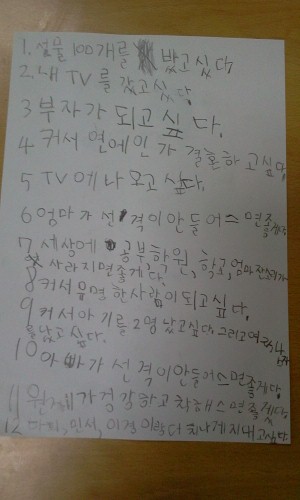 1. 선물 100개를 밨고싶다
2. 내 TV를 갔고싶다.
3 부자가 되고 싶다.
4 커서 연예인가 결혼하고싶다.
5 TV에 나오고 싶다.
6 엄마가 선격이 안들어스면 좋게다
7 세상에 공부하원, 학교, 엄마잔소리가
사라지면 좋게다.
8 커서 유명한사람이 되고싶다.
9 커서 아기를 2명 낳고싶다 그리고
를 낳고 싶다.
10 아빠가 선격이 안들어스면 좋게다.
11 가 건강하고 착해스면 좋겠다.
12 민서, 이랑 더 치나게 지내고싶다.